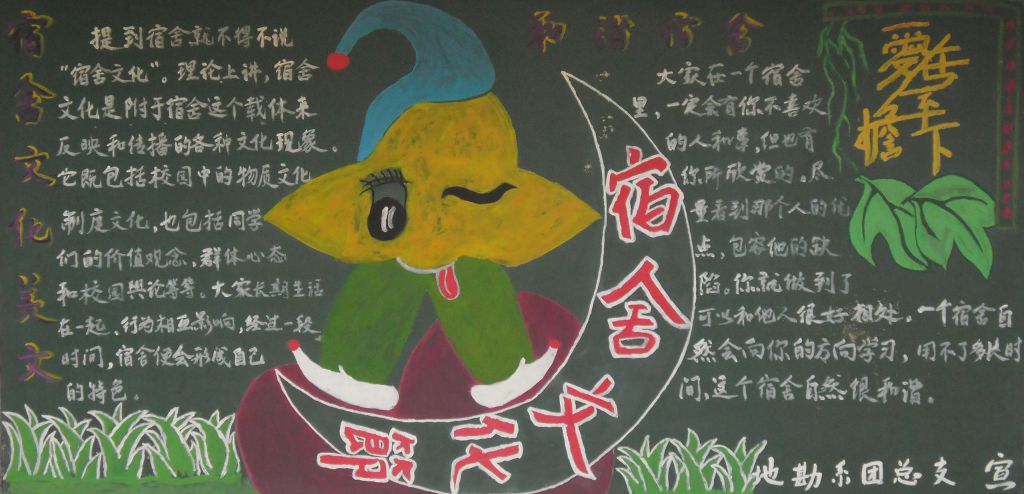 宿舍文化美文
提到宿舍就不得不说
“宿舍文化”。理论上讲，宿舍
文化是附于宿舍这个载体来
反映和传播的各种文化现象。
它既包括校园中的物质文化
制度文化，也包括同学
们的价值观念、群体心态
和校园舆论等等。大家长期生活
在一起，行为相互影响，经过一段
时间，宿舍便会形成自己
的特色。
宿舍文化节
和谐宿舍
大家在一个宿舍
里，一定会有你不喜欢
的人和事，但也有
你所欣赏的。尽
量看到那个人的优
点，包容他的缺
陷。你就做到了
可以和他人很好相处。一个宿舍自
然会向你的方向学习，用不了多久时
间，这个宿舍自然很和谐。
爱在
屋
檐下
地勘系团总支 宣